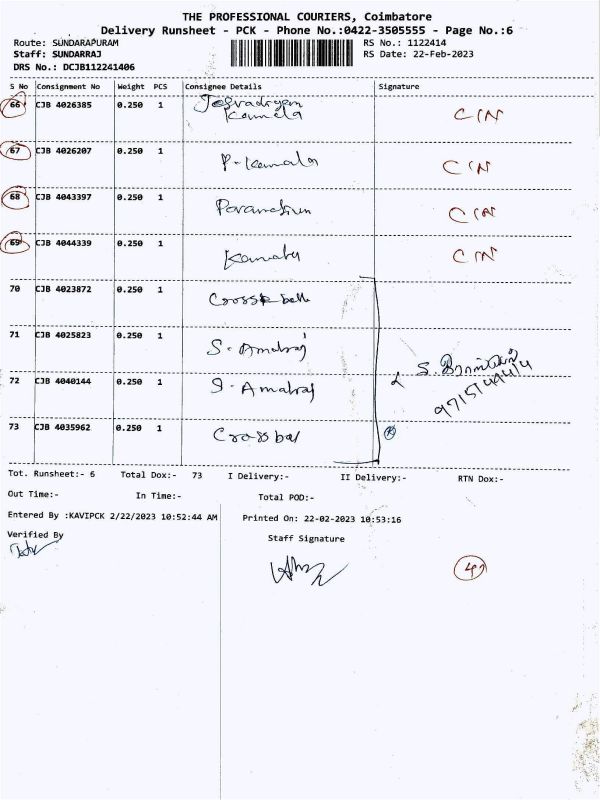 THE PROFESSIONAL COURIERS, Coimbatore
Delivery Runsheet - PCK - Phone No.:0422-3505555 - Page No.:6
Route: SUNDARAPURAM RS No.: 1122414
Staff: SUNDARRAJ RS Date: 22-Feb-2023
DRS No.: DCJB112241406
S No Consignment No Weight PCS Consignee Details Signature
66 CJB 4026385 0.250 1 CIN
Kamala
67 CJB 4026207 0.250 1 P-Kamala CIN
68 CJB 4043397 0.250 1 CIN
69 CJB 4044339 0.250 1 CIN
70 CJB 4023872 0.250 1
71 CJB 4025823 0.250 1 S- Amalraj
72 CJB 4040144 0.250 1 S- Amalraj
9715149414
73 CJB 4035962 0.250 1 Crossbar
Tot. Runsheet:- 6 Total Dox:- 73 I Delivery:- II Delivery:- RTN Dox:-
Out Time:- In Time:- Total POD:-
Entered By :KAVIPCK 2/22/2023 10:52:44 AM Printed On: 22-02-2023 10:53:16
Verified By Staff Signature